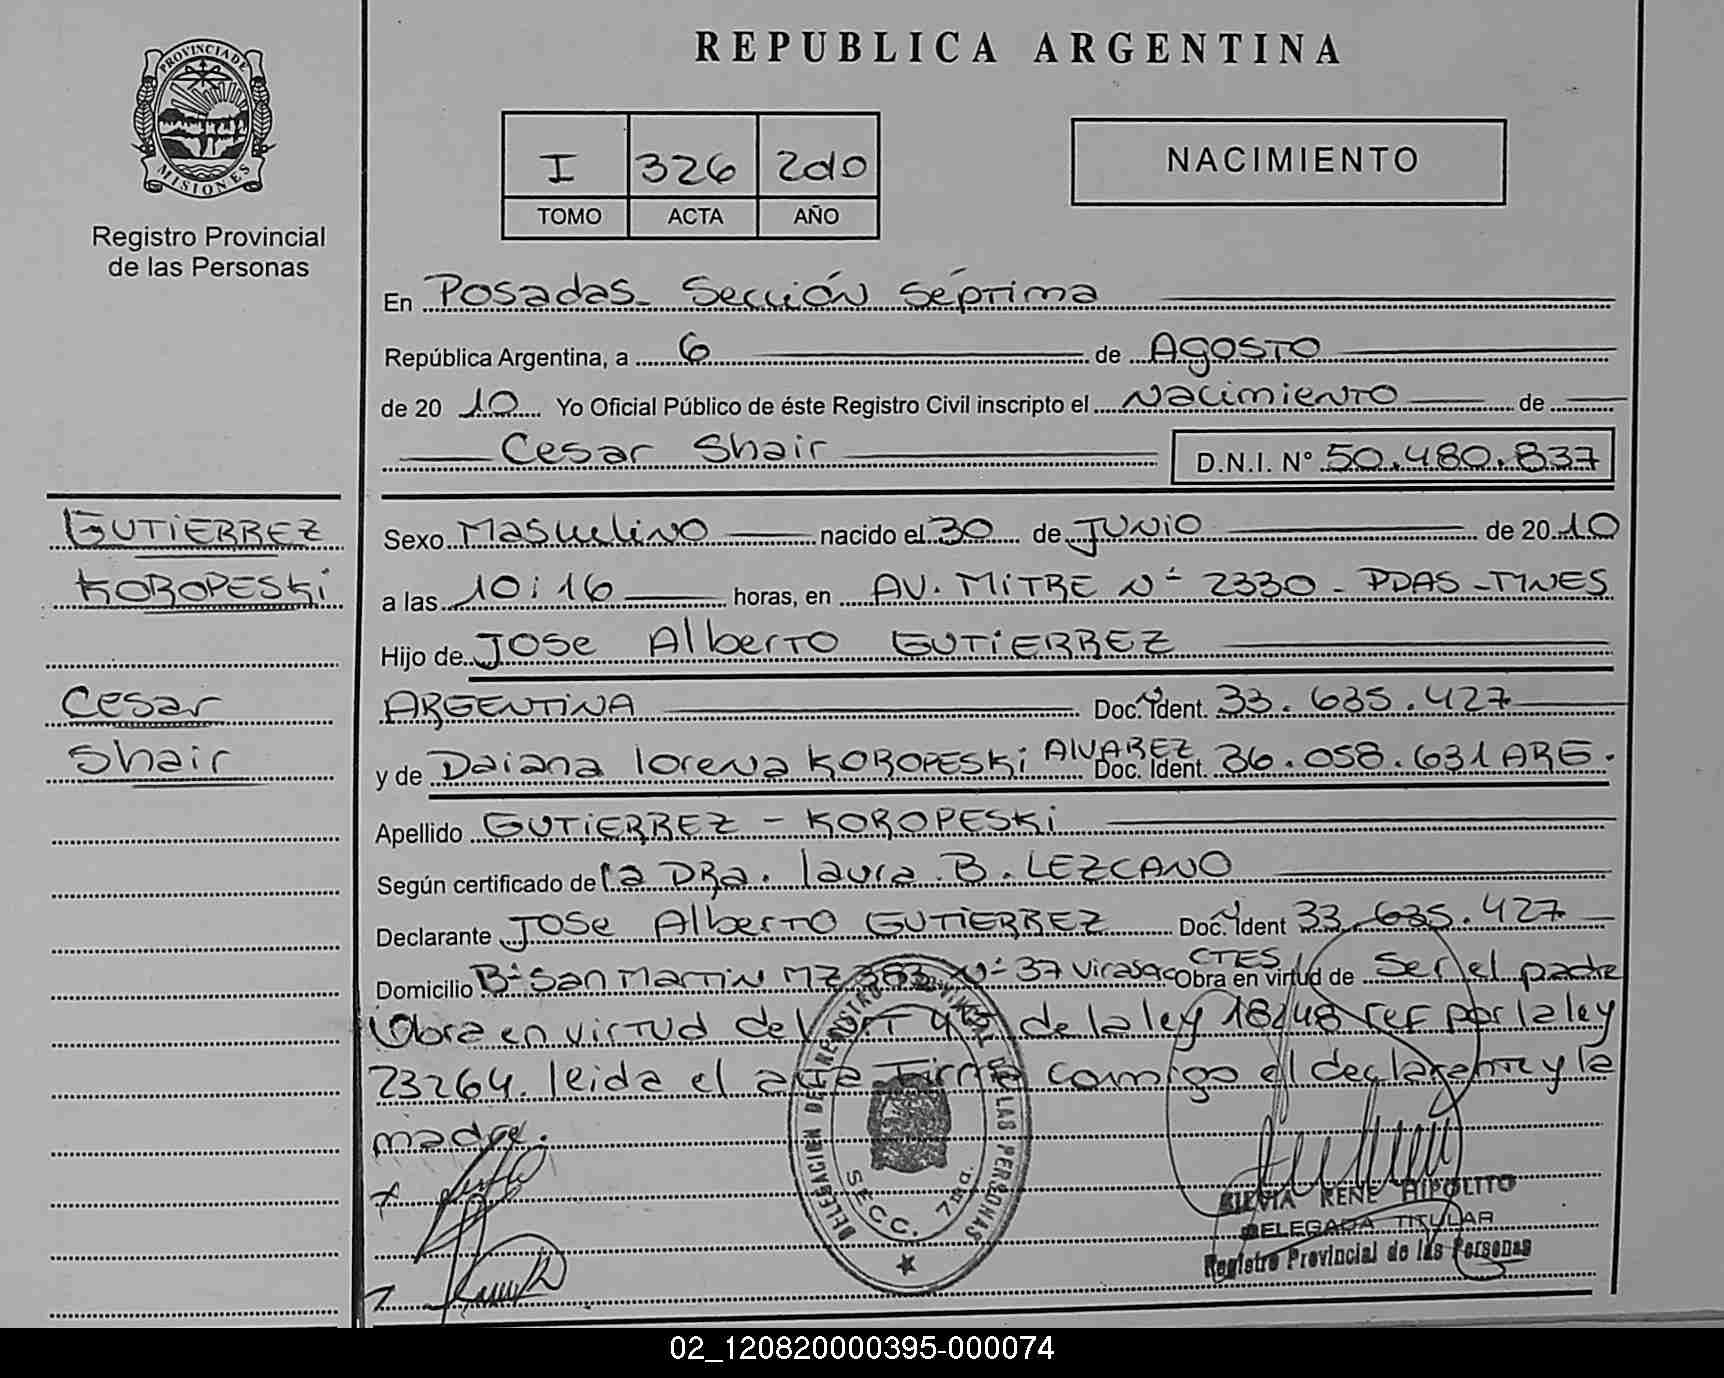 PROVINCIA DE
MISIONES
Registro Provincial
de las Personas
REPUBLICA ARGENTINA
I 326 2do
TOMO ACTA AÑO
NACIMIENTO
En Posadas - Sección Séptima
República Argentina, a 6 de AGOSTO
de 20 10 Yo Oficial Público de éste Registro Civil inscripto el Nacimiento de
Cesar Shair D.N.I. N° 50.480.837
GUTIERREZ
KOROPESKi
Cesar
Shair
Sexo Masculino nacido el 30 de JUNIO de 20 10
a las 10:16 horas, en AV. MITRE N° 2330 - PDAS - MNES
Hijo de JOSE Alberto GUTIERREZ
ARGENTINA Doc. Ident. 33.635.427
y de Daiana lorena KOROPESKi ALVAREZ Doc. Ident. 36.058.631 ARG.
Apellido GUTIERREZ - KOROPESKi
Según certificado de la DRa. laura B. LEZCANO
Declarante JOSE Alberto GUTIERREZ Doc. Ident 33.635.427
Domicilio B° San Martin MZ 383 N° 37 Virasoro CTES Obra en virtud de Ser el padre
Obra en virtud del de la ley 18248 ref por la ley
23264. leida el acta Firma conmigo el declarante y la
madre.
DELEGACION DEL REGISTRO PROVINCIAL DE LAS PERSONAS
SECC. 7ma.
SILVIA RENE HIPOLITO
DELEGADA TITULAR
Registro Provincial de las Personas
02_120820000395-000074